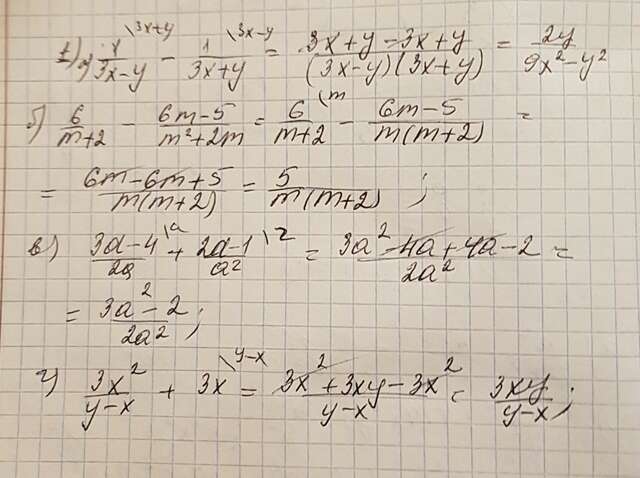 1. а) 1/(3x-y) \3x+y - 1/(3x+y) \3x-y = (3x+y-3x+y)/((3x-y)(3x+y)) = 2y/(9x²-y²)
б) 6/(m+2) - (6m-5)/(m²+2m) = 6/(m+2) \m - (6m-5)/(m(m+2)) =
= (6m-6m+5)/(m(m+2)) = 5/(m(m+2)) ;
в) (3a-4)/(2a) \a + (2a-1)/(a²) \2 = (3a²-4a+4a-2)/(2a²) =
= (3a²-2)/(2a²) ;
г) 3x²/(y-x) + 3x \y-x = (3x²+3xy-3x²)/(y-x) = 3xy/(y-x) ;